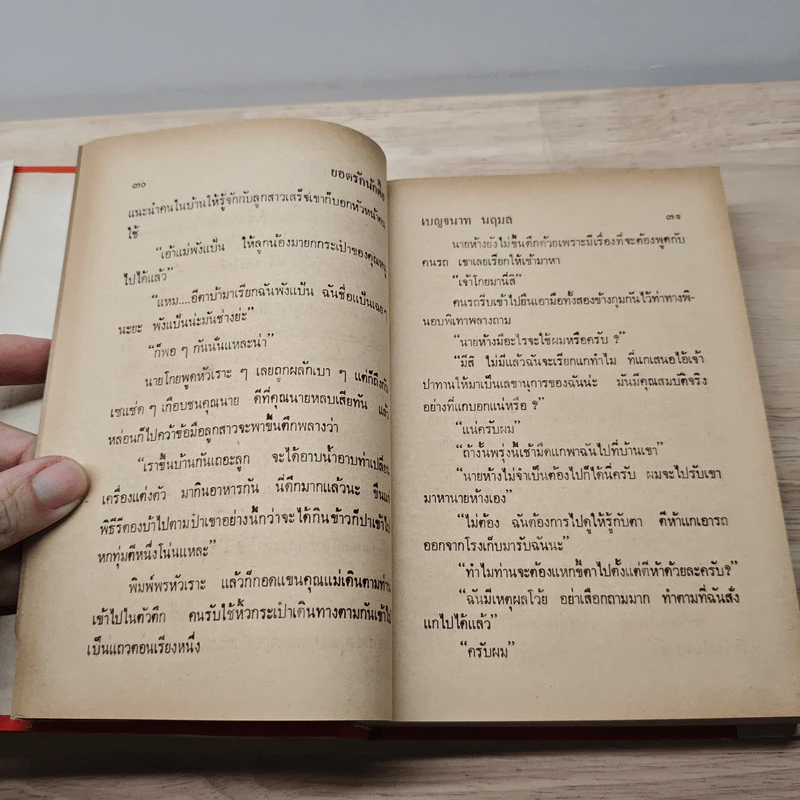 ๓๐
ยอดรักนักตื๊อ
แนะนำคนในบ้านให้รู้จักกับลูกสาวเสร็จเขาก็บอกหัวหน้าคน
ใช้
“เอ้าแม่พังแป้น ให้ลูกน้องมายกกระเป๋าของคุณหนู
ไปได้แล้ว”
“แหม....อีตาบ้ามาเรียกฉันพังแป้น ฉันชื่อแป้นเฉย ๆ
นะยะ พังแป้นน่ะมันช้างย่ะ”
“ก็พอ ๆ กันนั่นแหละน่า”
นายโกยพูดหัวเราะ ๆ เลยถูกผลักเบา ๆ แต่ก็ถึงกับ
เซแซ่ด ๆ เกือบชนคุณนาย ดีที่คุณนายหลบเสียทัน แล้ว
หล่อนก็ไปคว้าข้อมือลูกสาวจะพาขึ้นตึกพลางว่า
“เราขึ้นบ้านกันเถอะลูก จะได้อาบน้ำอาบท่าเปลี่ยน
เครื่องแต่งตัว มากินอาหารกัน นี่ดึกมากแล้วนะ ขืนแก
พิธีรีตองบ้าไปตามป๋าเขาอย่างนี้กว่าจะได้กินข้าวก็ปาเข้าไป
หกทุ่มตีหนึ่งโน่นแหละ”
พิมพ์พรหัวเราะ แล้วก็กอดแขนคุณแม่เดินตามท่าน
เข้าไปในตัวตึก คนรับใช้หิ้วกระเป๋าเดินทางตามกันเข้าไป
เป็นแถวตอนเรียงหนึ่ง
เบญจนาท นฤมล
๓๑
นายห้างยังไม่ขึ้นตึกด้วยเพราะมีเรื่องที่จะต้องพูดกับ
คนรถ เขาเลยเรียกให้เข้ามาหา
“เจ้าโกยมานี่สิ”
คนรถรีบเข้าไปยืนเอามือทั้งสองข้างกุมกันไว้ทำทางพิ-
นอบพิเทาพลางถาม
“นายห้างมีอะไรจะใช้ผมหรือครับ ?”
“มีสิ ไม่มีแล้วฉันจะเรียกแกทำไม ที่แกเสนอไอ้เจ้า
ปาทานให้มาเป็นเลขานุการของฉันน่ะ มันมีคุณสมบัติจริง
อย่างที่แกบอกแน่หรือ ?”
“แน่ครับผม”
“ถ้างั้นพรุ่งนี้เช้ามืดแกพาฉันไปที่บ้านเขา”
“นายห้างไม่จำเป็นต้องไปก็ได้นี่ครับ ผมจะไปรับเขา
มาหานายห้างเอง”
“ไม่ต้อง ฉันต้องการไปดูให้รู้กับตา ตีห้าแกเอารถ
ออกจากโรงเก็บมารับฉันนะ”
“ทำไมท่านจะต้องแหกขี้ตาไปตั้งแต่ตีห้าด้วยละครับ?”
“ฉันมีเหตุผลโว้ย อย่าเสือกถามมาก ทำตามที่ฉันสั่ง
แกไปได้แล้ว”
“ครับผม”